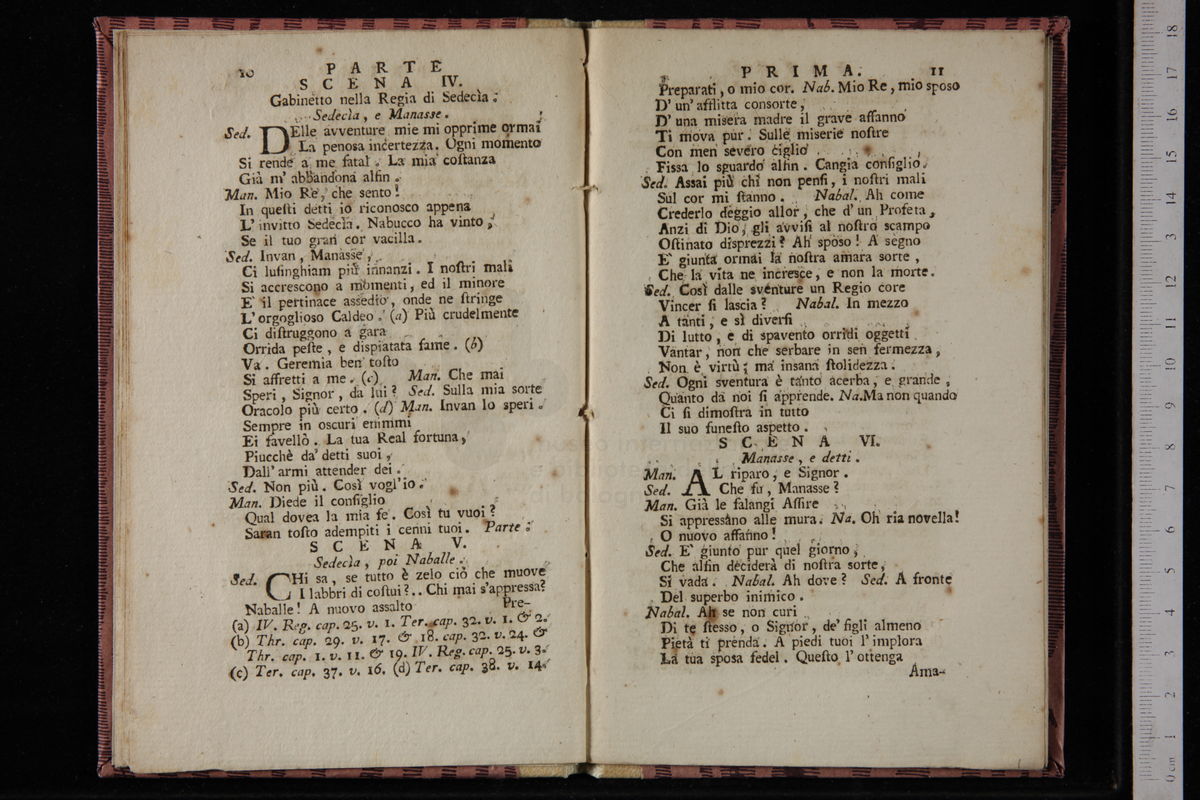 10
PARTE
SCENA IV.
Gabinetto nella Regia di Sedecìa.
Sedecìa, e Manasse.
Sed. DElle avventure mie mi opprime ormai
La penosa incertezza. Ogni momento
Si rende a me fatal. La mia coſtanza
Già m' abbandona alfin.
Man. Mio Re, che sento!
In queſti detti io riconosco appena
L' invitto Sedecìa. Nabucco ha vinto,
Se il tuo gran cor vacilla.
Sed. Invan, Manasse,
Ci luſinghiam più innanzi. I noſtri mali
Si accrescono a momenti, ed il minore
E' il pertinace assedio, onde ne ſtringe
L' orgoglioso Caldeo. (a) Più crudelmente
Ci diſtruggono a gara
Orrida peſte, e dispiatata fame. (b)
Va. Geremia ben toſto
Si affretti a me. (c) Man. Che mai
Speri, Signor, da lui? Sed. Sulla mia sorte
Oracolo più certo. (d) Man. Invan lo speri.
Sempre in oscuri enimmi
Ei favellò. La tua Real fortuna,
Piucchè da' detti suoi,
Dall' armi attender dei.
Sed. Non più. Così vogl'io.
Man. Diede il conſiglio
Qual dovea la mia fe. Così tu vuoi?
Saran toſto adempiti i cenni tuoi. Parte.
SCENA V.
Sedecìa, poi Naballe.
Sed. CHi sa, se tutto è zelo ciò che muove
I labbri di coſtui?.. Chi mai s'appressa?
Naballe! A nuovo assalto
Pre-
(a) IV. Reg. cap. 25. v. 1. Ter. cap. 32. v. 1. & 2.
(b) Thr. cap. 29. v. 17. & 18. cap. 32. v. 24. &
Thr. cap. 1. v. 11. & 19. IV. Reg. cap. 25. v. 3.
(c) Ter. cap. 37. v. 16. (d) Ter. cap. 38. v. 14.
PRIMA. 11
Preparati, o mio cor. Nab. Mio Re, mio sposo
D' un' afflitta consorte,
D' una misera madre il grave affanno
Ti mova pur. Sulle miserie noſtre
Con men severo ciglio
Fissa lo sguardo alfin. Cangia conſiglio.
Sed. Assai più chi non penſi, i noſtri mali
Sul cor mi ſtanno. Nabal. Ah come
Crederlo deggio allor, che d' un Profeta,
Anzi di Dio, gli avviſi al noſtro scampo
Oſtinato disprezzi? Ah sposo! A segno
E' giunta ormai la noſtra amara sorte,
Che la vita ne incresce, e non la morte.
Sed. Così dalle sventure un Regio core
Vincer ſi lascia? Nabal. In mezzo
A tanti, e sì diverſi
Di lutto, e di spavento orridi oggetti
Vantar, non che serbare in sen fermezza,
Non è virtù; ma insana ſtolidezza.
Sed. Ogni sventura è tanto acerba, e grande,
Quanto da noi ſi apprende. Na. Ma non quando
Ci ſi dimoſtra in tutto
Il suo funeſto aspetto.
SCENA VI.
Manasse, e detti.
Man. AL riparo, e Signor.
Sed. Che fu, Manasse?
Man. Già le falangi Aſſire
Si appressano alle mura. Na. Oh ria novella!
O nuovo affanno!
Sed. E' giunto pur quel giorno,
Che alfin deciderà di noſtra sorte,
Si vada. Nabal. Ah dove? Sed. A fronte
Del superbo inimico.
Nabal. Ah se non curi
Di te ſtesso, o Signor, de' figli almeno
Pietà ti prenda. A piedi tuoi l' implora
La tua sposa fedel. Queſto l' ottenga
Ama-
0 cm 1 2 3 4 5 6 7 8 9 10 11 12 3 14 15 16 17 18